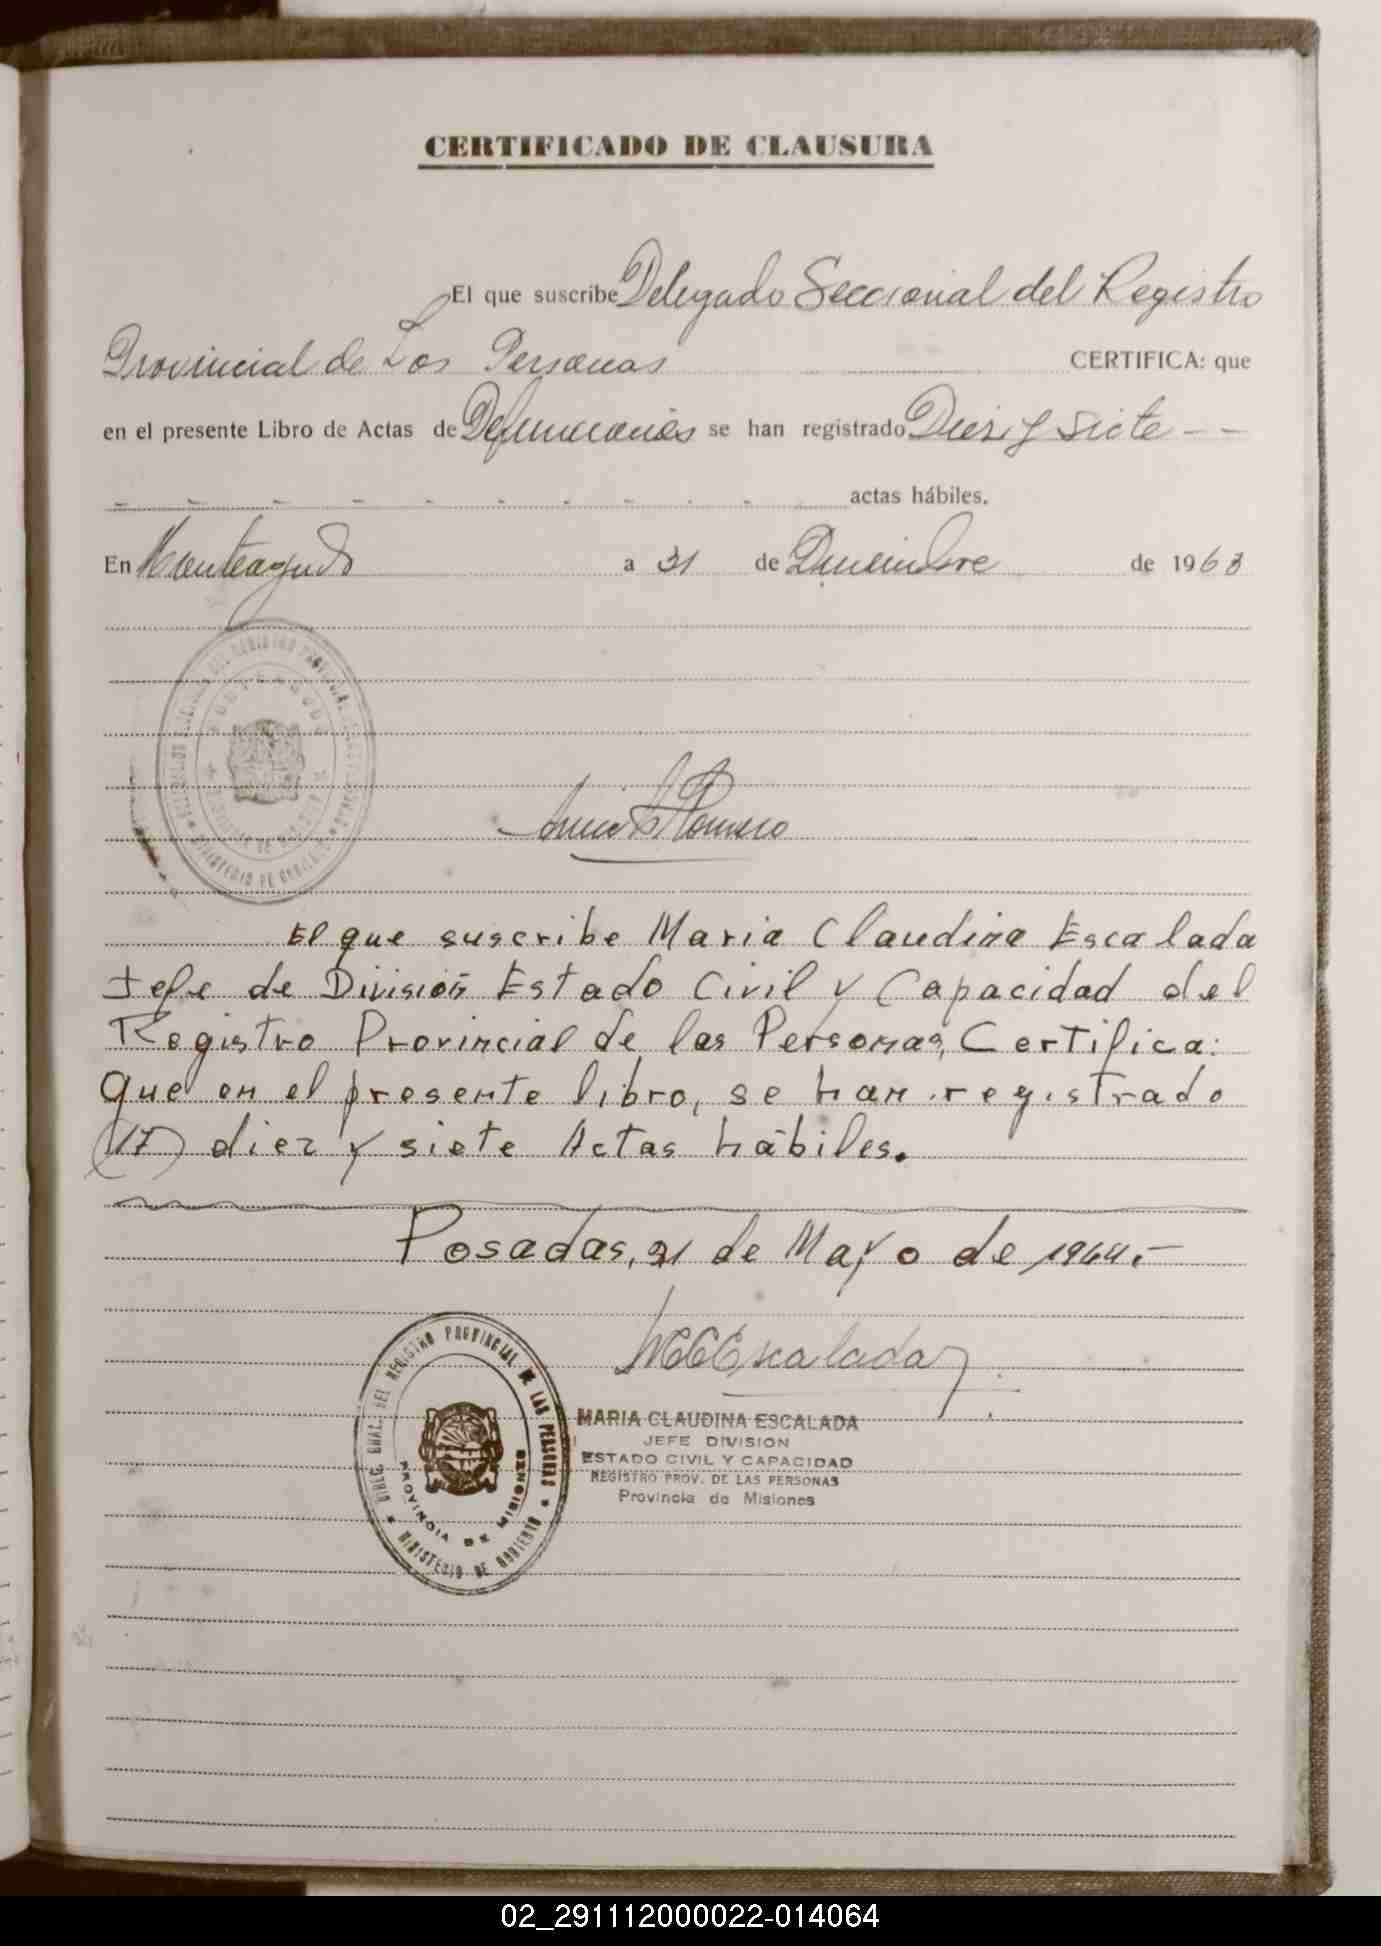 CERTIFICADO DE CLAUSURA
El que suscribe Delegado Seccional del Registro
Provincial de Las Personas CERTIFICA: que
en el presente Libro de Actas de Defunciones se han registrado Diez y siete - -
- - - - - - - - - - actas hábiles.
En Monteagudo a 31 de Diciembre de 1963
Romero
El que suscribe Maria Claudina Escalada
Jefe de División Estado Civil y Capacidad del
Registro Provincial de las Personas, Certifica:
Que en el presente libro, se han registrado
(17) diez y siete Actas hábiles.
Posadas, 21 de Mayo de 1964.-
MCEscalada
DIREC. GRAL. DEL REGISTRO PROVINCIAL DE LAS PERSONAS
PROVINCIA DE MISIONES
MINISTERIO DE GOBIERNO
MARIA CLAUDINA ESCALADA
JEFE DIVISION
ESTADO CIVIL Y CAPACIDAD
REGISTRO PROV. DE LAS PERSONAS
Provincia de Misiones
02_291112000022-014064